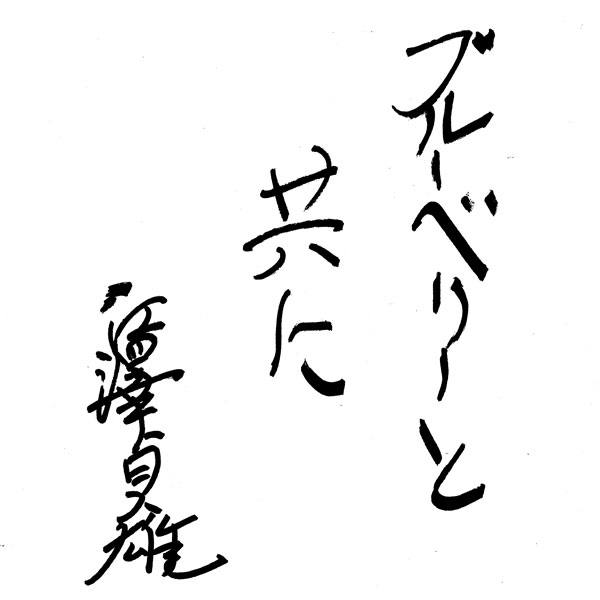 ブルーベリーと
共に
澤貞雄